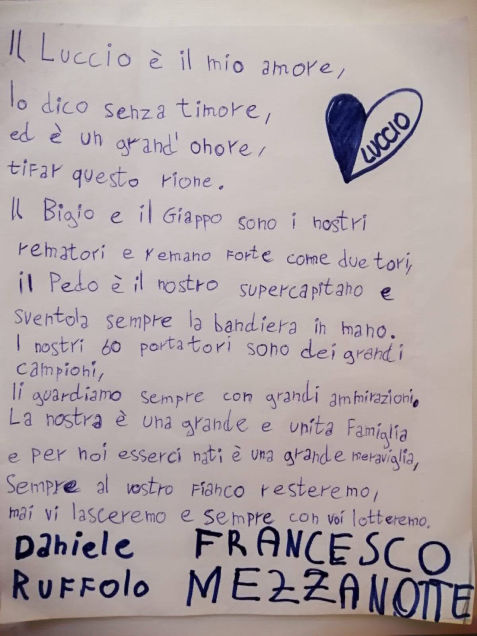 Il Luccio è il mio amore,
lo dico senza timore,
ed è un grand' onore,
tifar questo rione.
LUCCIO
Il Bigio e il Giappo sono i nostri
rematori e remano forte come due tori,
il Pedo è il nostro supercapitano e
sventola sempre la bandiera in mano.
I nostri 60 portatori sono dei grandi
campioni,
li guardiamo sempre con grandi ammirazioni.
La nostra è una grande e unita famiglia
e per noi esserci nati è una grande meraviglia,
Sempre al vostro fianco resteremo,
mai vi lasceremo e sempre con voi lotteremo.
Daniele FRANCESCO
RUFFolo MEZZANOTTE